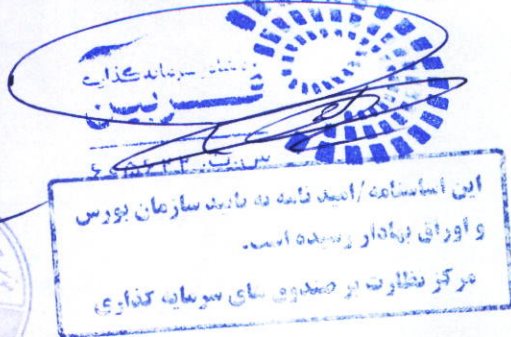 سرمایه‌گذاری
این اساسنامه/امید نامه به تایید سازمان بورس
و اوراق بهادار رسیده است.
مرکز نظارت بر صندوق های سرمایه گذاری